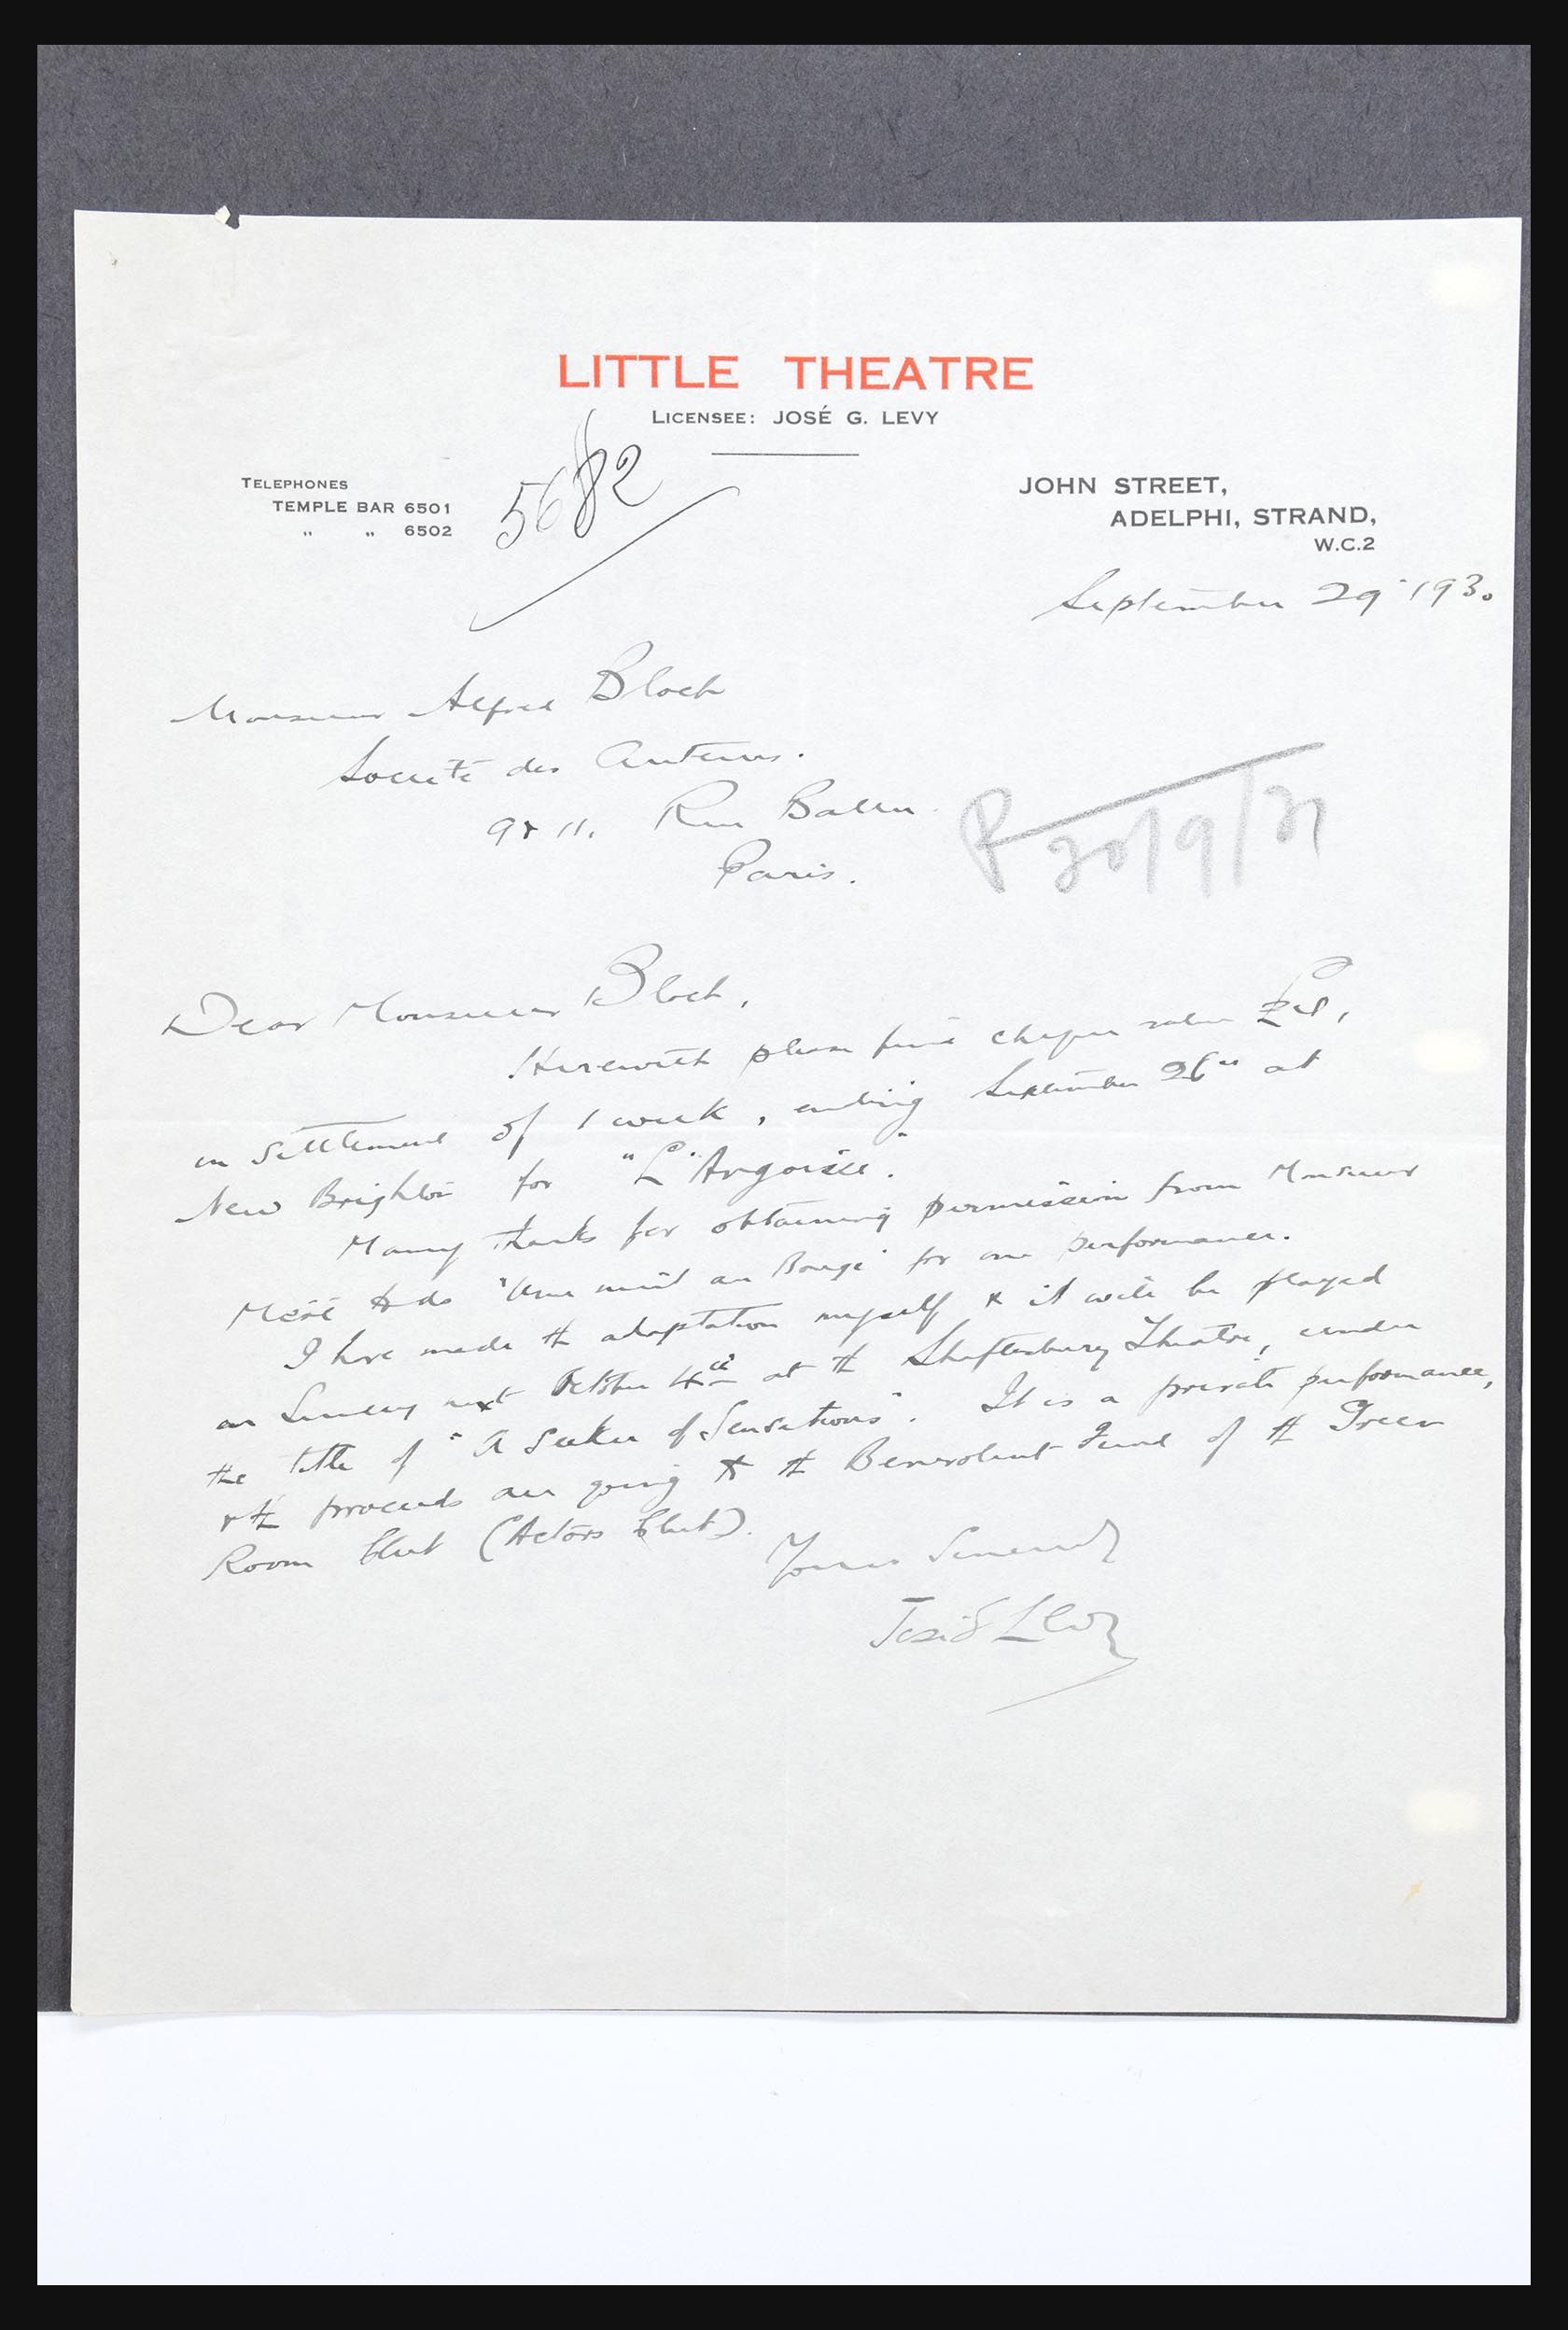 LITTLE THEATRE
LICENSEE: JOSÉ G. LEVY
TELEPHONES
TEMPLE BAR 6501
" " 6502
5682
JOHN STREET,
ADELPHI, STRAND,
W.C.2
September 29 1930
Monsieur Alfred Bloch
Société des Auteurs.
9 & 11. Rue Ballu
Paris.
30/9/31
Dear Monsieur Bloch,
Herewith please find cheque value
in settlement of 1 week, ending September 26th at
New Brighton for "L'Angoisse".
Many thanks for obtaining permission from Monsieur
Méré to do "Une nuit au Bouge" for one performance.
I have made the adaptation myself & it will be played
on Sunday next October 4th at the Shaftesbury Theatre, under
the title of "A Seeker of Sensations". It is a private performance,
& the proceeds are going to the Benevolent Fund of the Green
Room Club (Actors Club).
Yours Sincerely
José G Levy